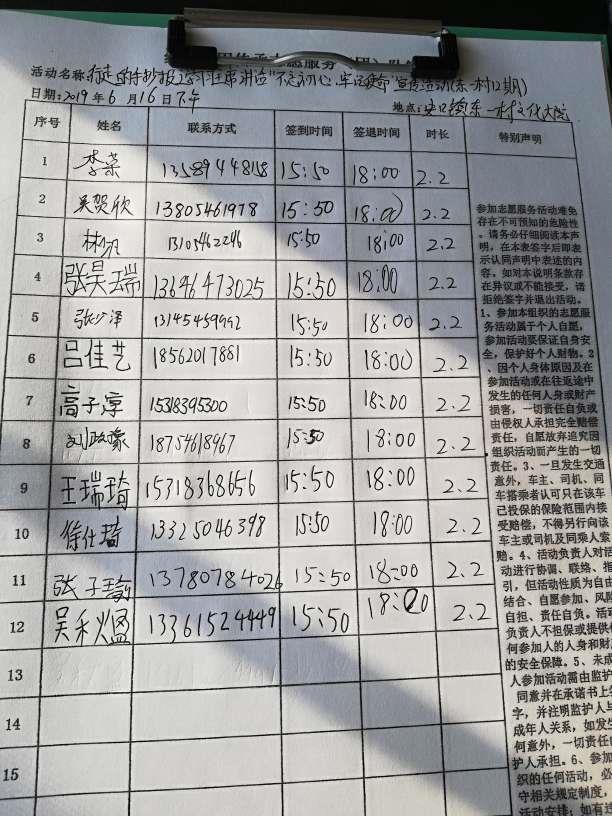 活动名称:行走的手抄报 习主席讲话"不忘初心、牢记使命"宣传活动(东一村12期)
日期:2019年6月16日下午
地点:
序号 姓名 联系方式 签到时间 签退时间 时长 特别声明
1 李荣 15:50 18:00 2.2
2 吴贺欣 13805461978 15:50 18:00 2.2
3 13105462246 15:50 18:00 2.2
4 张昊瑞 13646473025 15:50 18:00 2.2
5 张少泽 13145459992 15:50 18:00 2.2
6 吕佳艺 18562017881 15:50 18:00 2.2
7 高子淳 15318395300 15:50 18:00 2.2
8 刘政豪 18754618967 15:50 18:00 2.2
9 王瑞琦 15318368656 15:50 18:00 2.2
10 徐仕琦 13325046398 15:50 18:00 2.2
11 张子 13780784026 15:50 18:00 2.2
12 吴禾 13361524449 15:50 18:00 2.2
13
14
15
参加志愿服务活动难免
存在不可预知的危险性
。请务必仔细阅读本声
明，在本表签字后即表
示认同声明中表述的内
容。如对本说明条款存
在异议或不能接受，请
拒绝签字并退出活动。
1、参加本组织的志愿服
务活动属于个人自愿，
参加活动要保证自身安
全，保护好个人财物。2
、因个人身体原因及在
参加活动或在往返途中
发生的任何人身或财产
损害，一切责任自负或
由侵权人承担完全赔偿
责任，自愿放弃追究因
组织活动而产生的一切
责任。3、一旦发生交通
意外，车主、司机、同
车搭乘者认可只在该车
已投保的保险范围内接
受赔偿，不得另行向该
车主或司机及同乘人索
赔。4、活动负责人对活
动进行协调、联络、指
引，但活动性质为自由
结合、自愿参加、风险
自担、责任自负。活动
负责人不担保或提供任
何参加人的人身和财产
的安全保障。5、未成
人参加活动需由监护
同意并在承诺书上签
字，并注明监护人与
成年人关系，如发生
何意外，一切责任由
护人承担。6、参加
织的任何活动，必
守相关规定制度，
活动安排；如有违